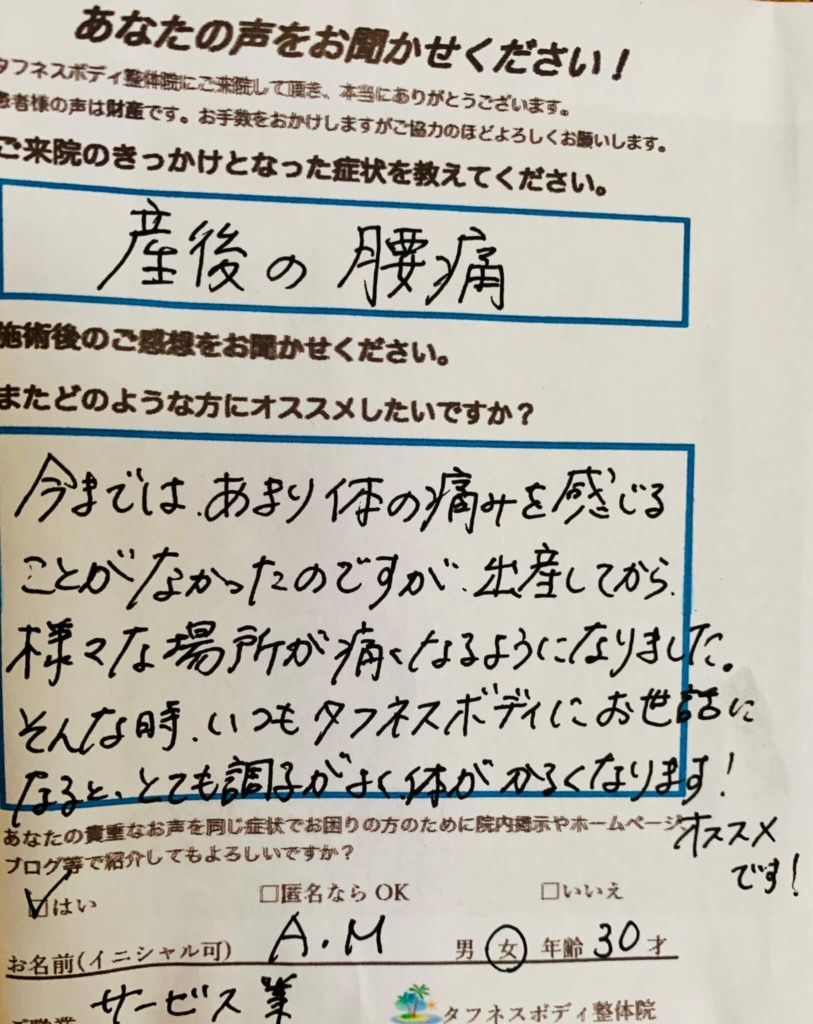 あなたの声をお聞かせください!
タフネスボディ整体院にご来院して頂き、本当にありがとうございます。
患者様の声は財産です。お手数をおかけしますがご協力のほどよろしくお願いします。
ご来院のきっかけとなった症状を教えてください。
産後の腰痛
施術後のご感想をお聞かせください。
またどのような方にオススメしたいですか?
今までは、あまり体の痛みを感じる
ことがなかったのですが、出産してから、
様々な場所が痛くなるようになりました。
そんな時、いつもタフネスボディにお世話に
なると、とても調子がよく、体がかるくなります!
オススメ
です!
あなたの貴重なお声を同じ症状でお困りの方のために院内掲示やホームページ
ブログ等で紹介してもよろしいですか?
☑はい □匿名ならOK □いいえ
お名前(イニシャル可) A.M 男 女 年齢 30 才
ご職業 サービス業 タフネスボディ整体院